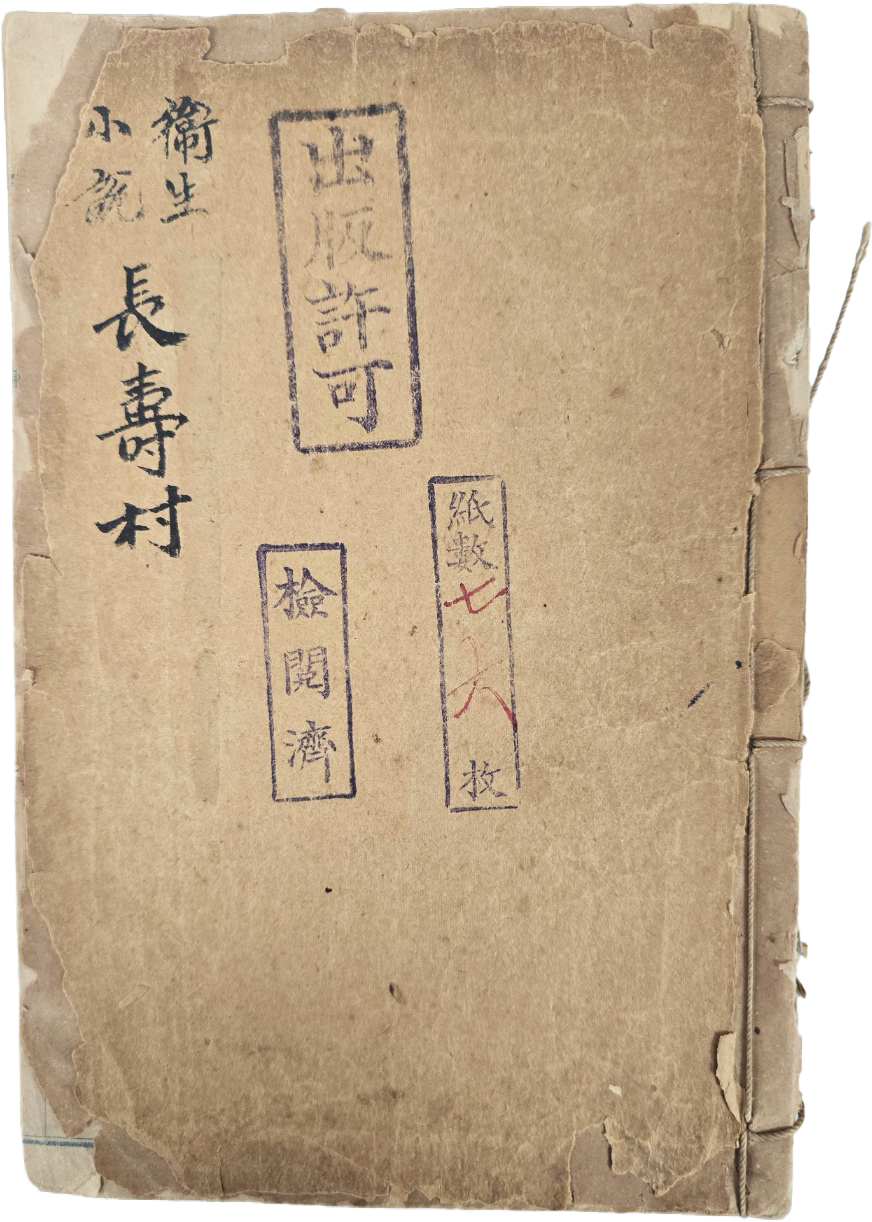 衛生
小說
長壽村
出版許可
紙數七六枚
檢閱濟